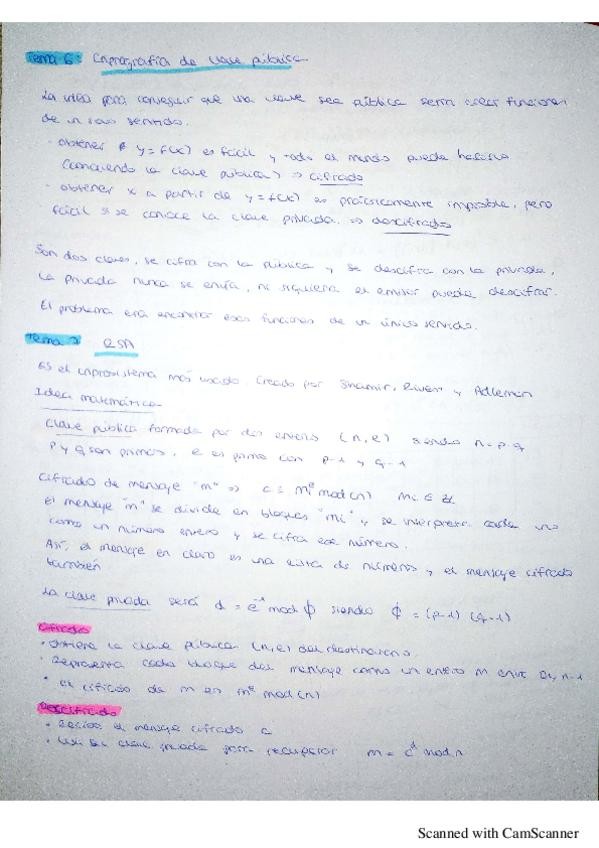 Tema 6: Criptografía de clave pública
La idea para conseguir que una clave sea pública sería crear funciones
de un solo sentido.
· obtener y = f(x) es fácil y todo el mundo puede hacerlo
(conociendo la clave pública) => cifrado
· obtener x a partir de y = f(x) es prácticamente imposible, pero
fácil si se conoce la clave privada. => descifrado
Son dos claves, se cifra con la pública y se descifra con la privada,
la privada nunca se envía, ni siquiera el emisor puede descifrar.
El problema era encontrar esas funciones de un único sentido.
Tema 7 RSA
Es el criptosistema más usado. Creado por Shamir, Rivest y Adleman
Idea matemática
Clave pública formada por dos enteros (n, e) siendo n = p·q
p y q son primos, e es primo con p-1 y q-1
Cifrado de mensaje "m" => c ≡ m^e mod(n)
El mensaje "m" se divide en bloques "mi" y se interpreta cada uno
como un número entero y se cifra ese número.
Así, el mensaje en claro es una lista de números y el mensaje cifrado
también
La clave privada será d = e^-1 mod ϕ siendo ϕ = (p-1)(q-1)
Cifrado
· Obtiene la clave pública (n, e) del destinatario.
· Representa cada bloque del mensaje como un entero m entre 0 y n-1
· el cifrado de m es m^e mod(n)
Descifrado
· Recibe el mensaje cifrado c
· clave privada para recuperar m = c^d mod n
Scanned with CamScanner